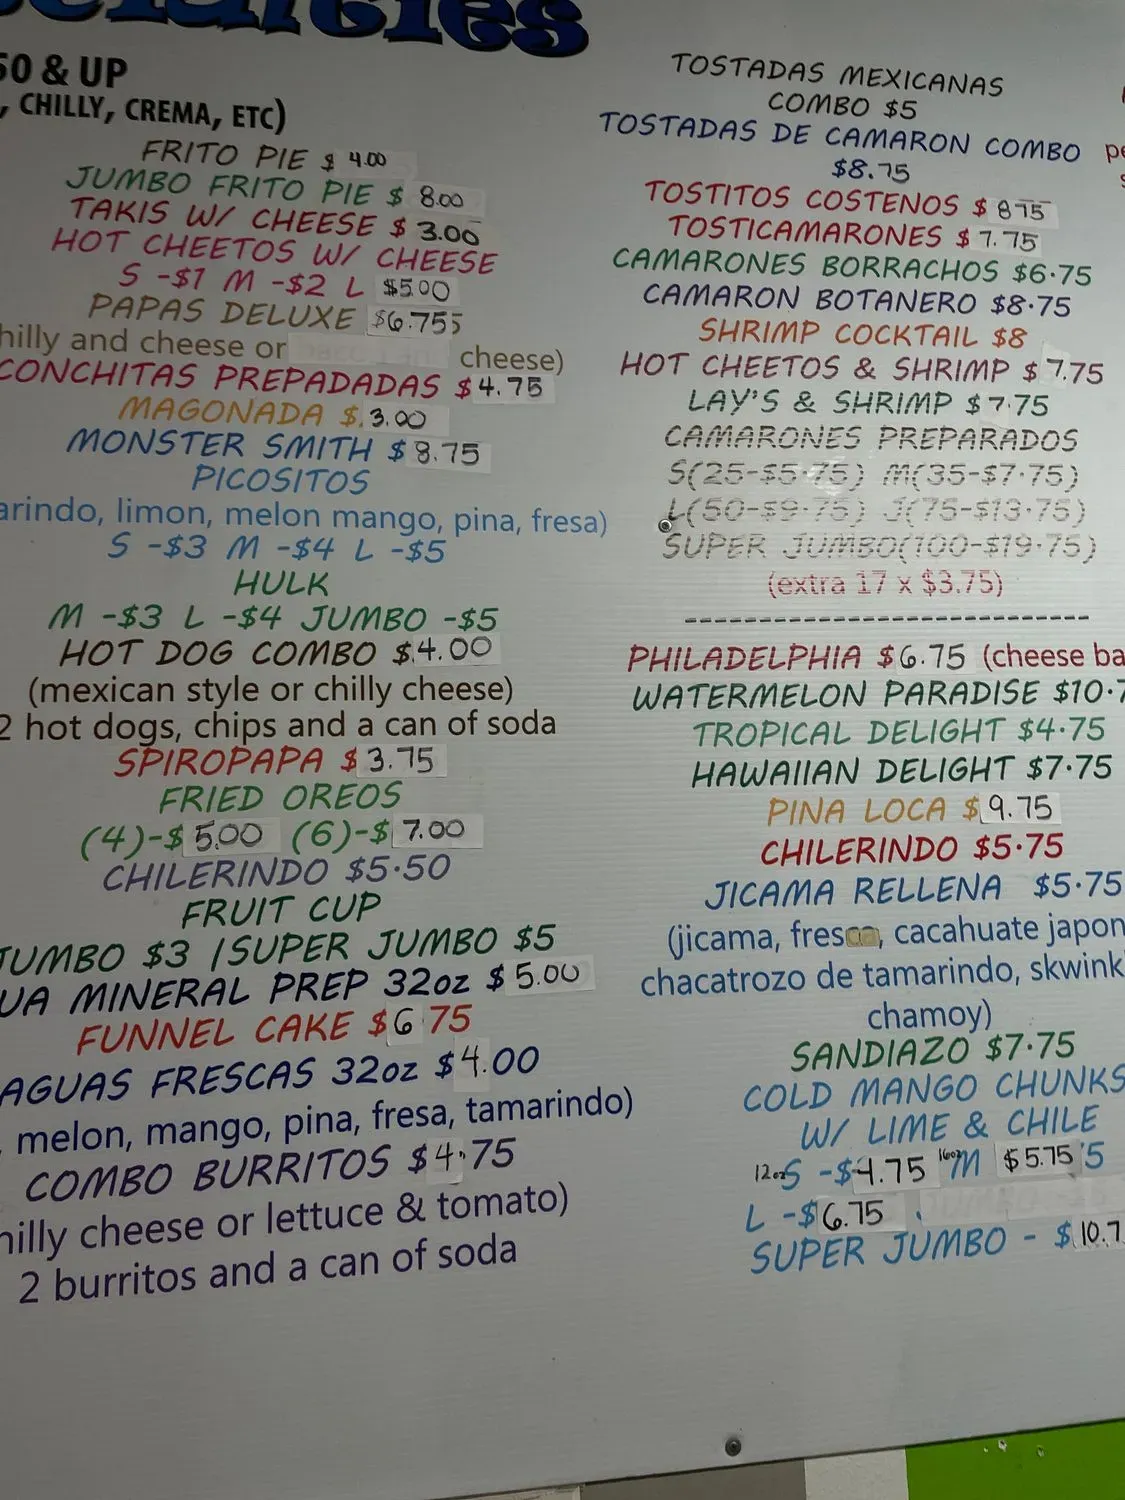 50 & UP
, CHILLY, CREMA, ETC)
FRITO PIE $ 4.00
JUMBO FRITO PIE $ 8.00
TAKIS W/ CHEESE $ 3.00
HOT CHEETOS W/ CHEESE
S -$1 M -$2 L $5.00
PAPAS DELUXE $6.755
hilly and cheese or cheese)
CONCHITAS PREPADADAS $4.75
MAGONADA $.3.00
MONSTER SMITH $8.75
PICOSITOS
arindo, limon, melon mango, pina, fresa)
S -$3 M -$4 L -$5
HULK
M -$3 L -$4 JUMBO -$5
HOT DOG COMBO $4.00
(mexican style or chilly cheese)
2 hot dogs, chips and a can of soda
SPIROPAPA $3.75
FRIED OREOS
(4)-$5.00 (6)-$7.00
CHILERINDO $5.50
FRUIT CUP
JUMBO $3 /SUPER JUMBO $5
UA MINERAL PREP 32oz $5.00
FUNNEL CAKE $6 75
AGUAS FRESCAS 32oz $4.00
, melon, mango, pina, fresa, tamarindo)
COMBO BURRITOS $4.75
hilly cheese or lettuce & tomato)
2 burritos and a can of soda
TOSTADAS MEXICANAS
COMBO $5
TOSTADAS DE CAMARON COMBO
$8.75
TOSTITOS COSTENOS $875
TOSTICAMARONES $7.75
CAMARONES BORRACHOS $6.75
CAMARON BOTANERO $8.75
SHRIMP COCKTAIL $8
HOT CHEETOS & SHRIMP $7.75
LAY'S & SHRIMP $7.75
CAMARONES PREPARADOS
S(25-$5.75) M(35-$7.75)
L(50-$9.75) J(75-$13.75)
SUPER JUMBO(100-$19.75)
(extra 17 x $3.75)
----------------------------
PHILADELPHIA $6.75 (cheese ba
WATERMELON PARADISE $10.7
TROPICAL DELIGHT $4.75
HAWAIIAN DELIGHT $7.75
PINA LOCA $9.75
CHILERINDO $5.75
JICAMA RELLENA $5.75
(jicama, fresca, cacahuate japon
chacatrozo de tamarindo, skwink
chamoy)
SANDIAZO $7.75
COLD MANGO CHUNKS
W/ LIME & CHILE
12oz S -$4.75 16oz M $5.75 5
L -$6.75
SUPER JUMBO - $10.7